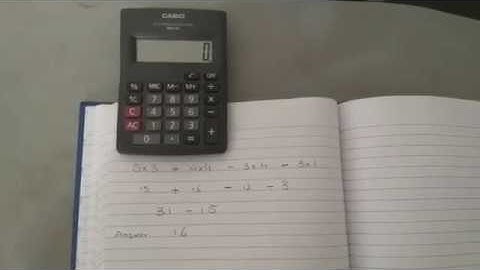 CASIO
0
% MC M- M+ ÷
7 8 9 ×
C 4 5 6 −
AC 1 2 3 +
0 . =
5x3 + 4x4 - 3x4 - 3x1
15 + 16 - 12 - 3
31 - 15
Answer 16